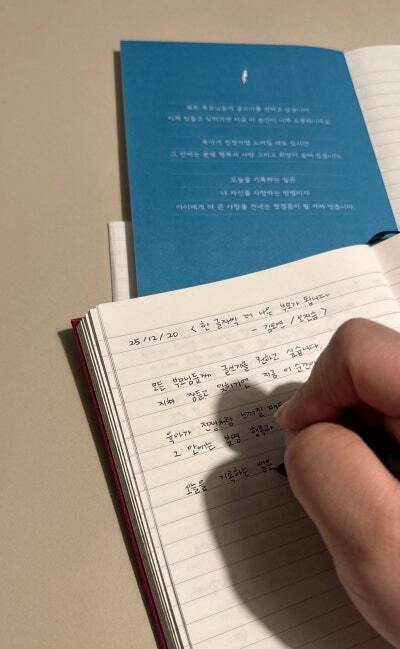 모든 부모님들께 글쓰기를 권하고 싶습니다.
지쳐 힘들고 잊히기엔 지금 이 순간이 너무 소중하니까요.
육아가 전쟁처럼 느껴질 때도 있지만
그 안에는 분명 행복과 사랑 그리고 희망이 숨어 있습니다.
오늘을 기록하는 일은
나 자신을 사랑하는 방법이자
아이에게 더 큰 사랑을 건네는 첫걸음이 될 거라 믿습니다.
25/12/20 < 한 글자씩 더 나은 부모가 됩니다
- 김도연 / 오진승 >
모든 부모님들께 글쓰기를 권하고 싶습니다
지쳐 힘들고 잊히기엔 지금 이 순간이
육아가 전쟁처럼 느껴질 때
그 안에는 분명 행복과
오늘을 기록하는 일은